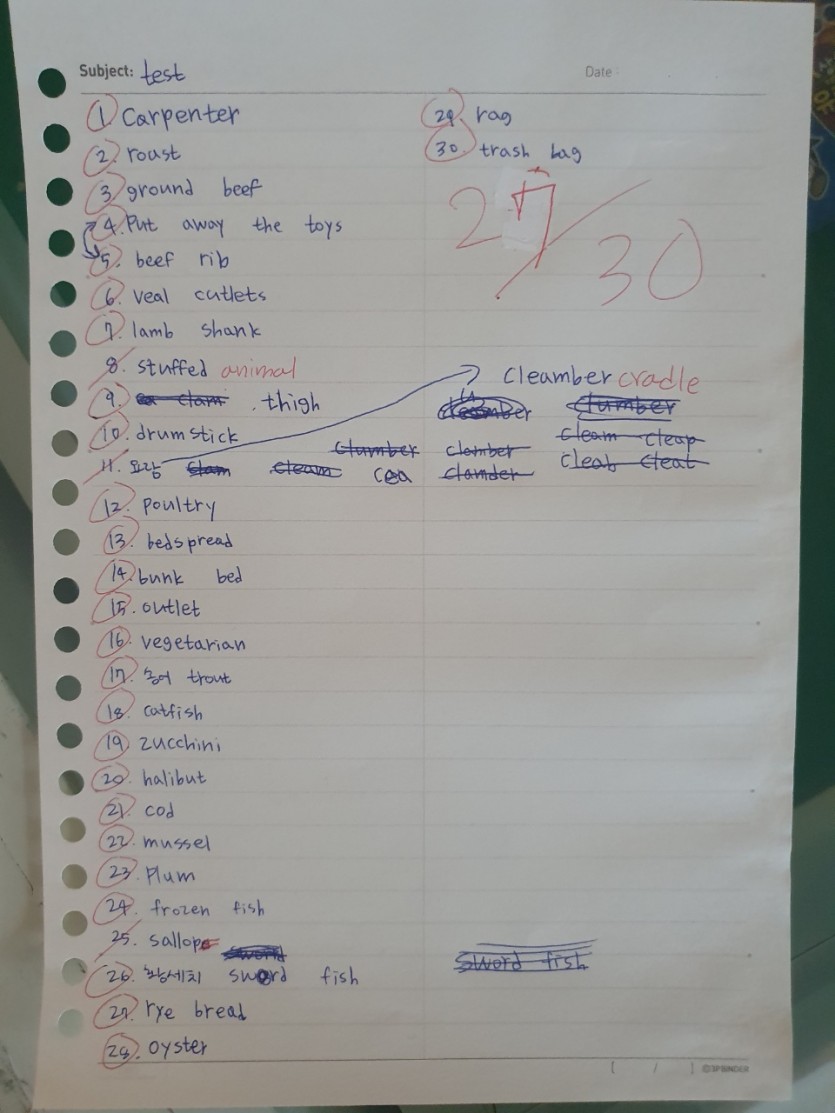 Subject: test
Date :
1 Carpenter
2. roast
3. ground beef
4. Put away the toys
5. beef rib
6. veal cutlets
7. lamb shank
8. stuffed animal
9. clam thigh
10. drumstick
11. 요람 clam cleam cea
clumber clamber
clamder
cleam cleap
cleab cleat
cleamber cradle
clumber
12. poultry
13. bedspread
14. bunk bed
15. outlet
16. vegetarian
17. 송어 trout
18. catfish
19. zucchini
20. halibut
21. cod
22. mussel
23. Plum
24. frozen fish
25. sallope sword
26. 황세치 sword fish
sword fish
27. rye bread
28. oyster
29. rag
30. trash bag
27/30
[ / ] ©3P BINDER